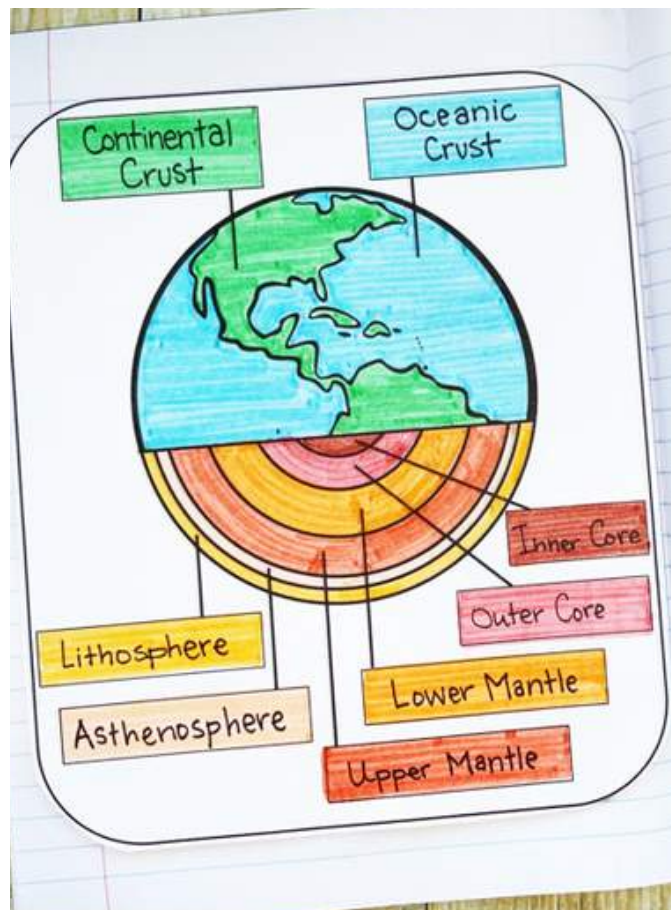 Continental
Crust
Oceanic
Crust
Inner Core
Outer Core
Lithosphere
Lower Mantle
Asthenosphere
Upper Mantle